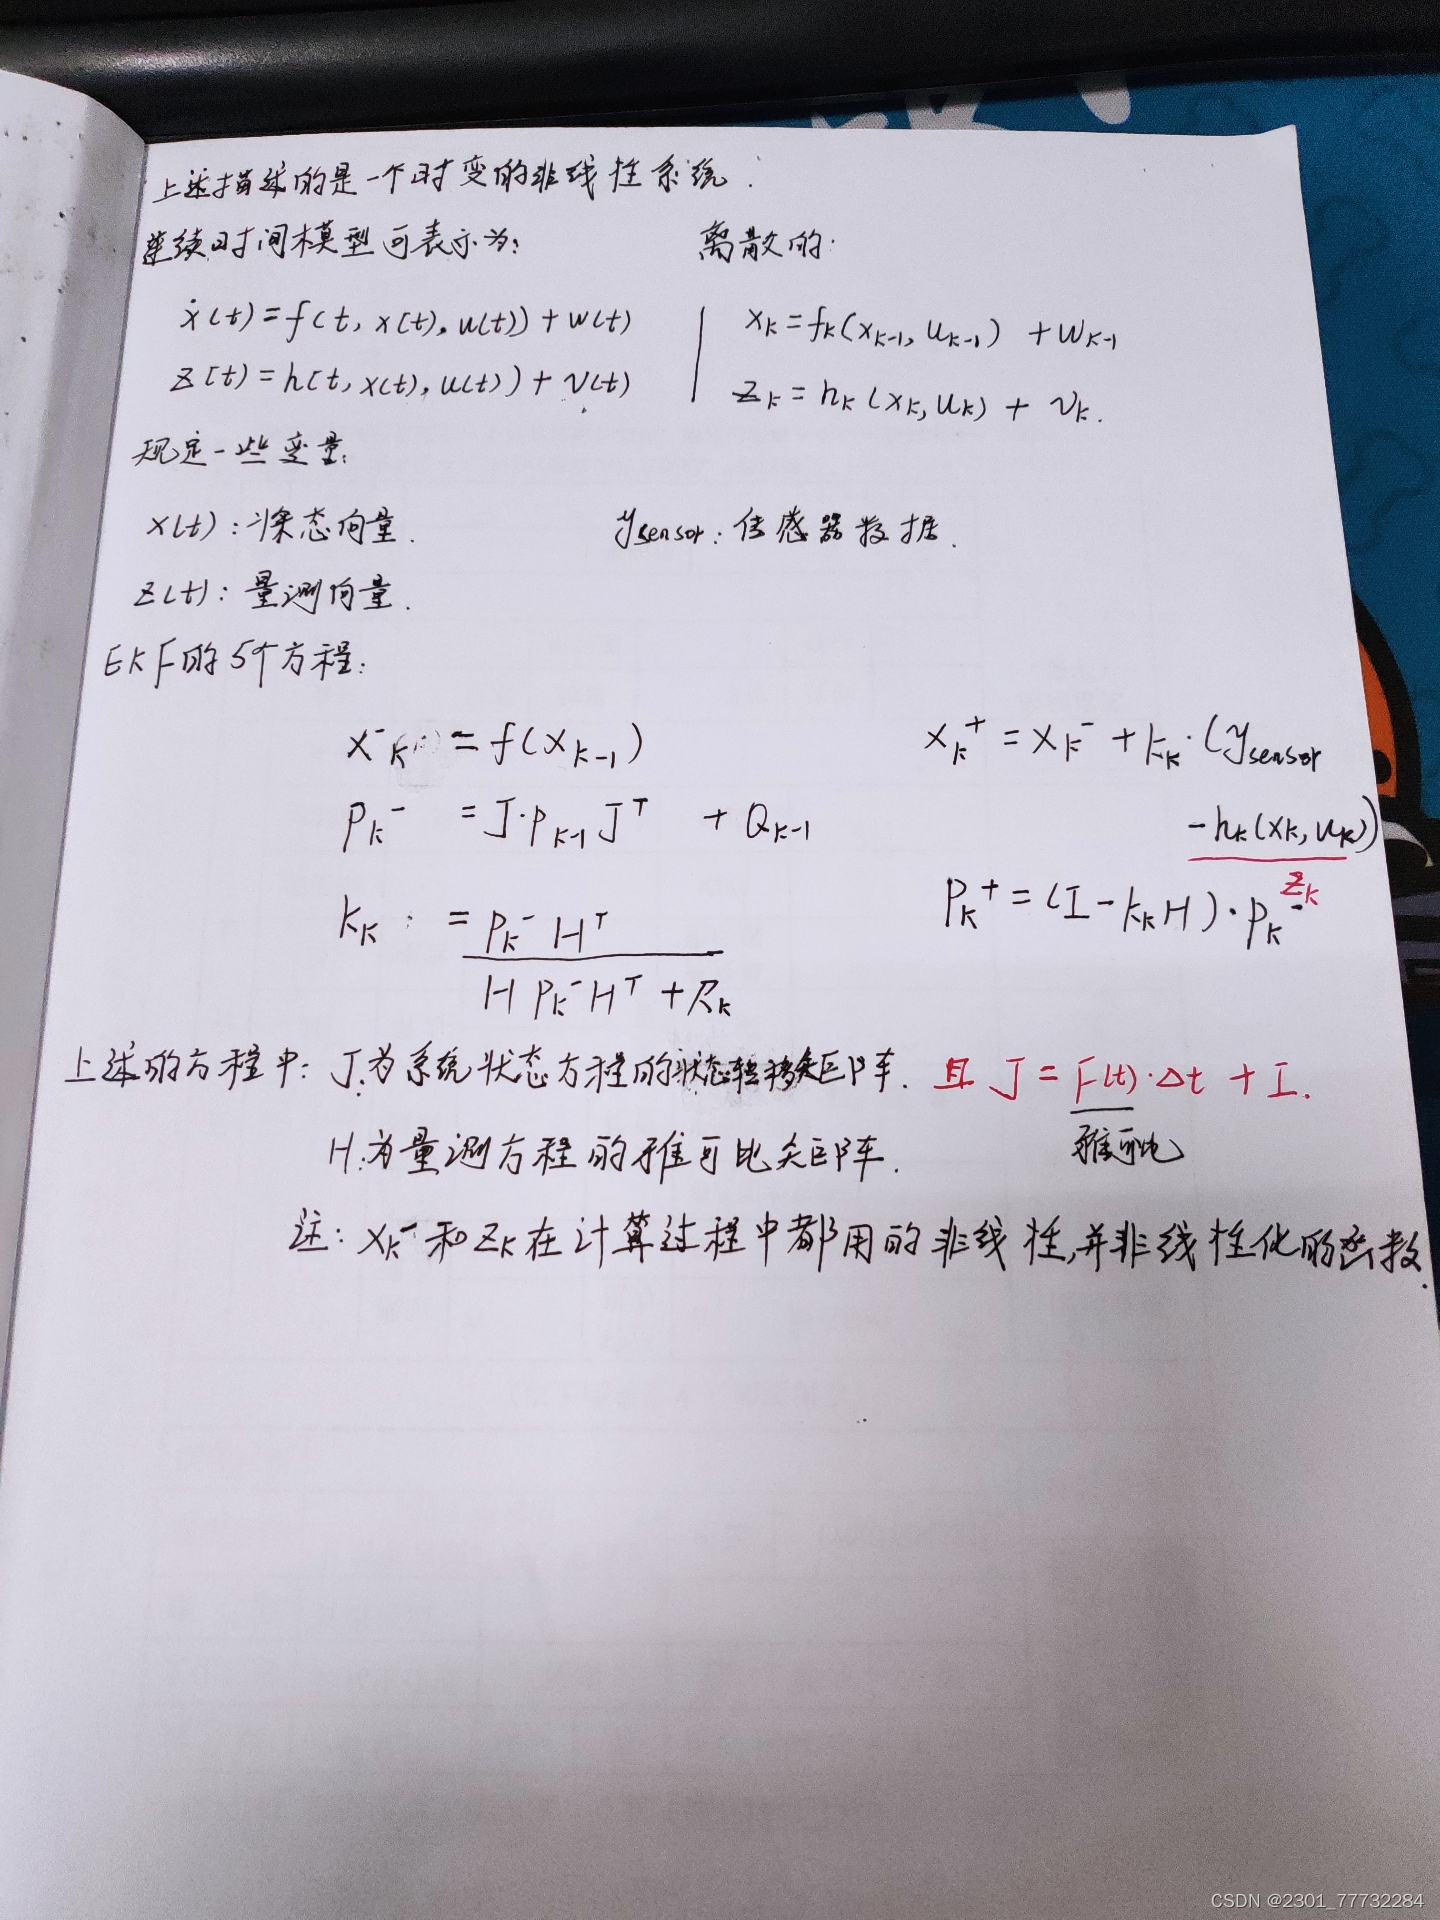 上述描述的是一个时变的非线性系统.
连续时间模型可表示为: 离散的:
ẋ(t)=f(t, x(t), u(t))+w(t) | x_k=f_k(x_{k-1}, u_{k-1}) +w_{k-1}
z(t)=h(t, x(t), u(t))+v(t) | z_k=h_k(x_k, u_k)+v_k.
规定一些变量:
x(t): 状态向量. y_sensor: 传感器数据.
z(t): 量测向量.
EKF的5个方程:
x^-_k = f(x_{k-1}) x_k^+ = x_k^- + k_k·(y_sensor
P_k^- = J·P_{k-1} J^T + Q_{k-1} -h_k(x_k, u_k))
z_k
k_k = P_k^- H^T P_k^+ = (I-k_k H)·P_k^-
H P_k^- H^T + R_k
上述的方程中: J:为系统状态方程的状态转移矩阵. 且 J = F(t)·Δt + I.
H:为量测方程的雅可比矩阵. 雅可比
注: x_k^- 和 z_k 在计算过程中都用的非线性,并非线性化的函数.
CSDN @2301_77732284